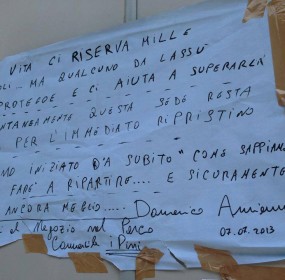 VITA CI RISERVA MILLE
OLI... MA QUALCUNO DA LASSU'
PROTEGGE E CI AIUTA A SUPERARLA
NTANEAMENTE QUESTA SEDE RESTA
PER L'IMMEDIATO RIPRISTINO
MO INIZIATO DA SUBITO" COME SAPPIAMO
FARE A RIPARTIRE.... E SICURAMENTE
ANCORA MEGLIO.... Domenico
il Negozio nel Parco
Comm.le i Pini
07.07.2013